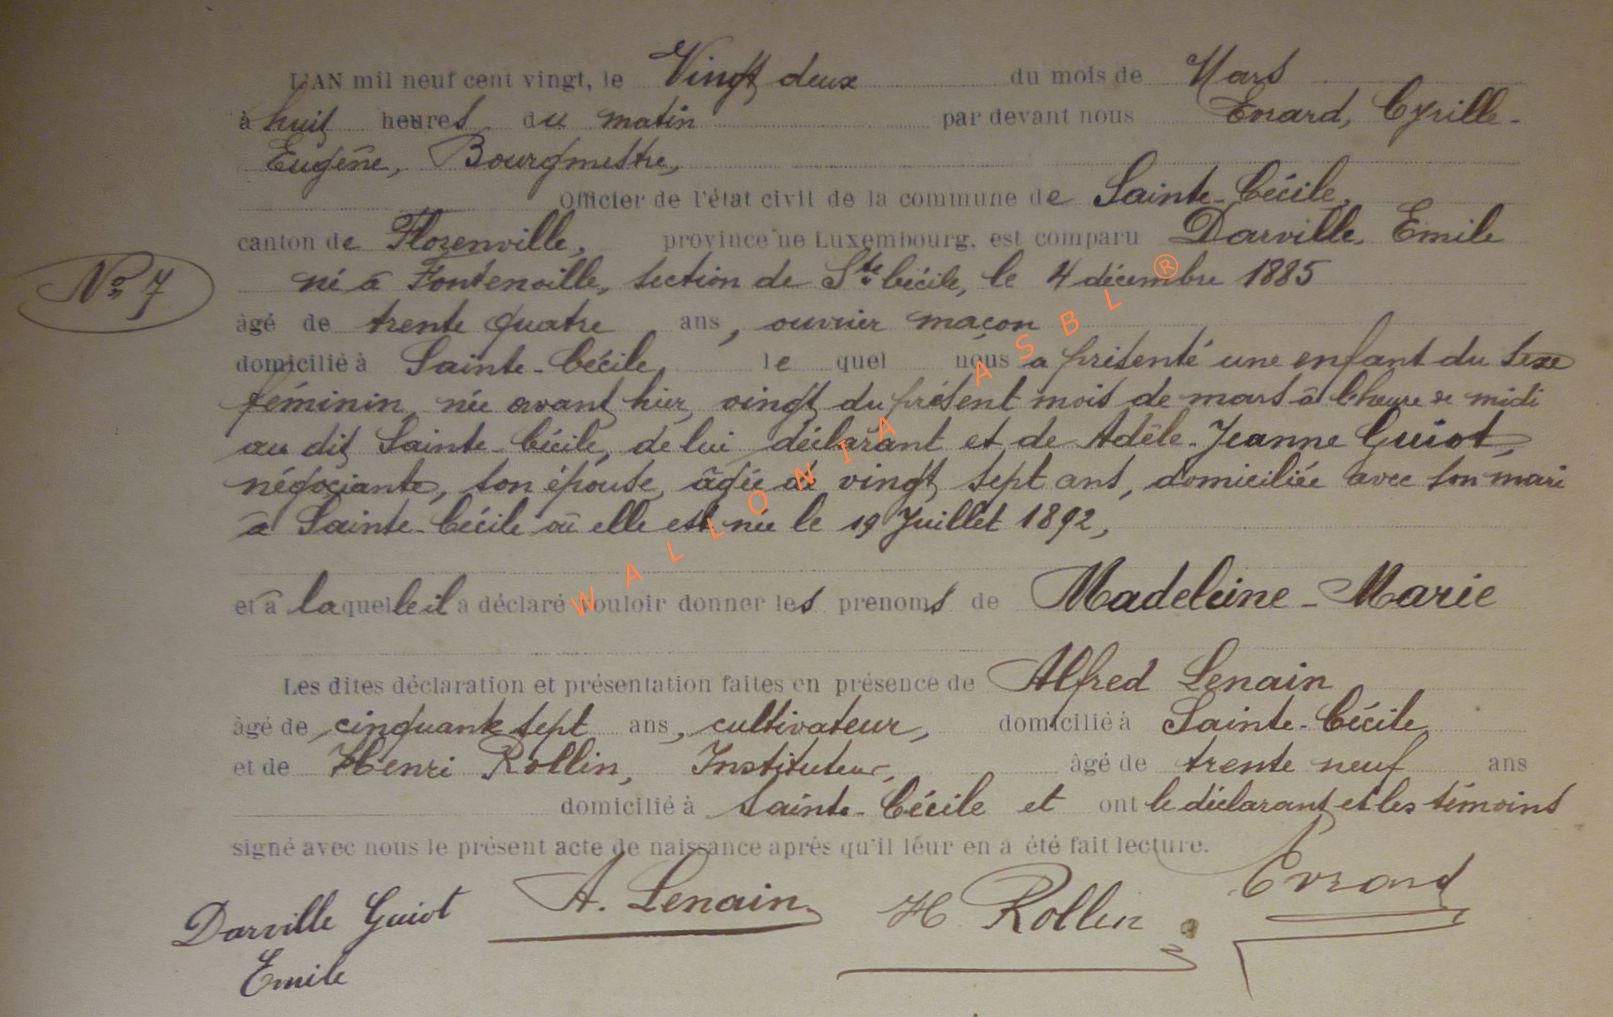 L'AN mil neuf cent vingt, le Vingt deux du mois de Mars
à huit heures du matin par devant nous Evrard, Cyrille-
Eugène, Bourgmestre,
Officier de l'état civil de la commune de Sainte-Cécile,
canton de Florenville, province de Luxembourg, est comparu Darville, Emile
N° 7
né à Fontenoille, section de Ste Cécile, le 4 décembre 1885
âgé de trente quatre ans, ouvrier maçon
domicilié à Sainte-Cécile le quel nous a présenté une enfant du sexe
féminin, née avant hier, vingt du présent mois de mars à l'heure de midi
au dit Sainte-Cécile, de lui déclarant et de Adèle-Jeanne Guiot,
négociante, son épouse, âgée de vingt sept ans, domiciliée avec son mari
à Sainte-Cécile où elle est née le 19 Juillet 1892,
et à laquelle il a déclaré vouloir donner les prénoms de Madeleine-Marie
Les dites déclaration et présentation faites en présence de Alfred Lenain
âgé de cinquante sept ans, cultivateur, domicilié à Sainte-Cécile
et de Henri Rollin, Instituteur, âgé de trente neuf ans
domicilié à Sainte-Cécile et ont le déclarant et les témoins
signé avec nous le présent acte de naissance après qu'il leur en a été fait lecture.
Darville Guiot
Emile
A. Lenain
H Rollin
Evrard
WALLONIA ASBL ®